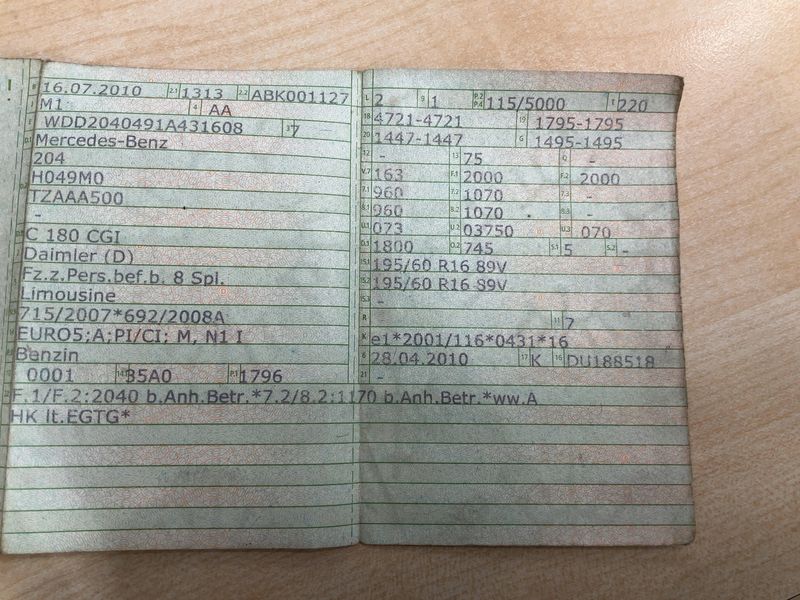 16.07.2010 2.1 1313 2.2 ABK001127
M1 4 AA
WDD2040491A431608 3 7
Mercedes-Benz
204
H049M0
TZAAA500
-
C 180 CGI
Daimler (D)
Fz.z.Pers.bef.b. 8 Spl.
Limousine
715/2007*692/2008A
EURO5;A;PI/CI; M, N1 I
Benzin
0001 35A0 P.1 1796
L 2 9 1 P.2 P.4 115/5000 T 220
18 4721-4721 19 1795-1795
20 1447-1447 G 1495-1495
12 - 13 75 Q -
V.7 163 F.1 2000 F.2 2000
7.1 960 7.2 1070 7.3 -
8.1 960 8.2 1070 8.3 -
U.1 073 U.2 03750 U.3 070
O.1 1800 O.2 745 S.1 5 S.2 -
15.1 195/60 R16 89V
15.2 195/60 R16 89V
15.3 -
R 11 7
K e1*2001/116*0431*16
6 28.04.2010 17 K 16 DU188518
21 -
F.1/F.2:2040 b.Anh.Betr.*7.2/8.2:1170 b.Anh.Betr.*ww.A
HK lt.EGTG*